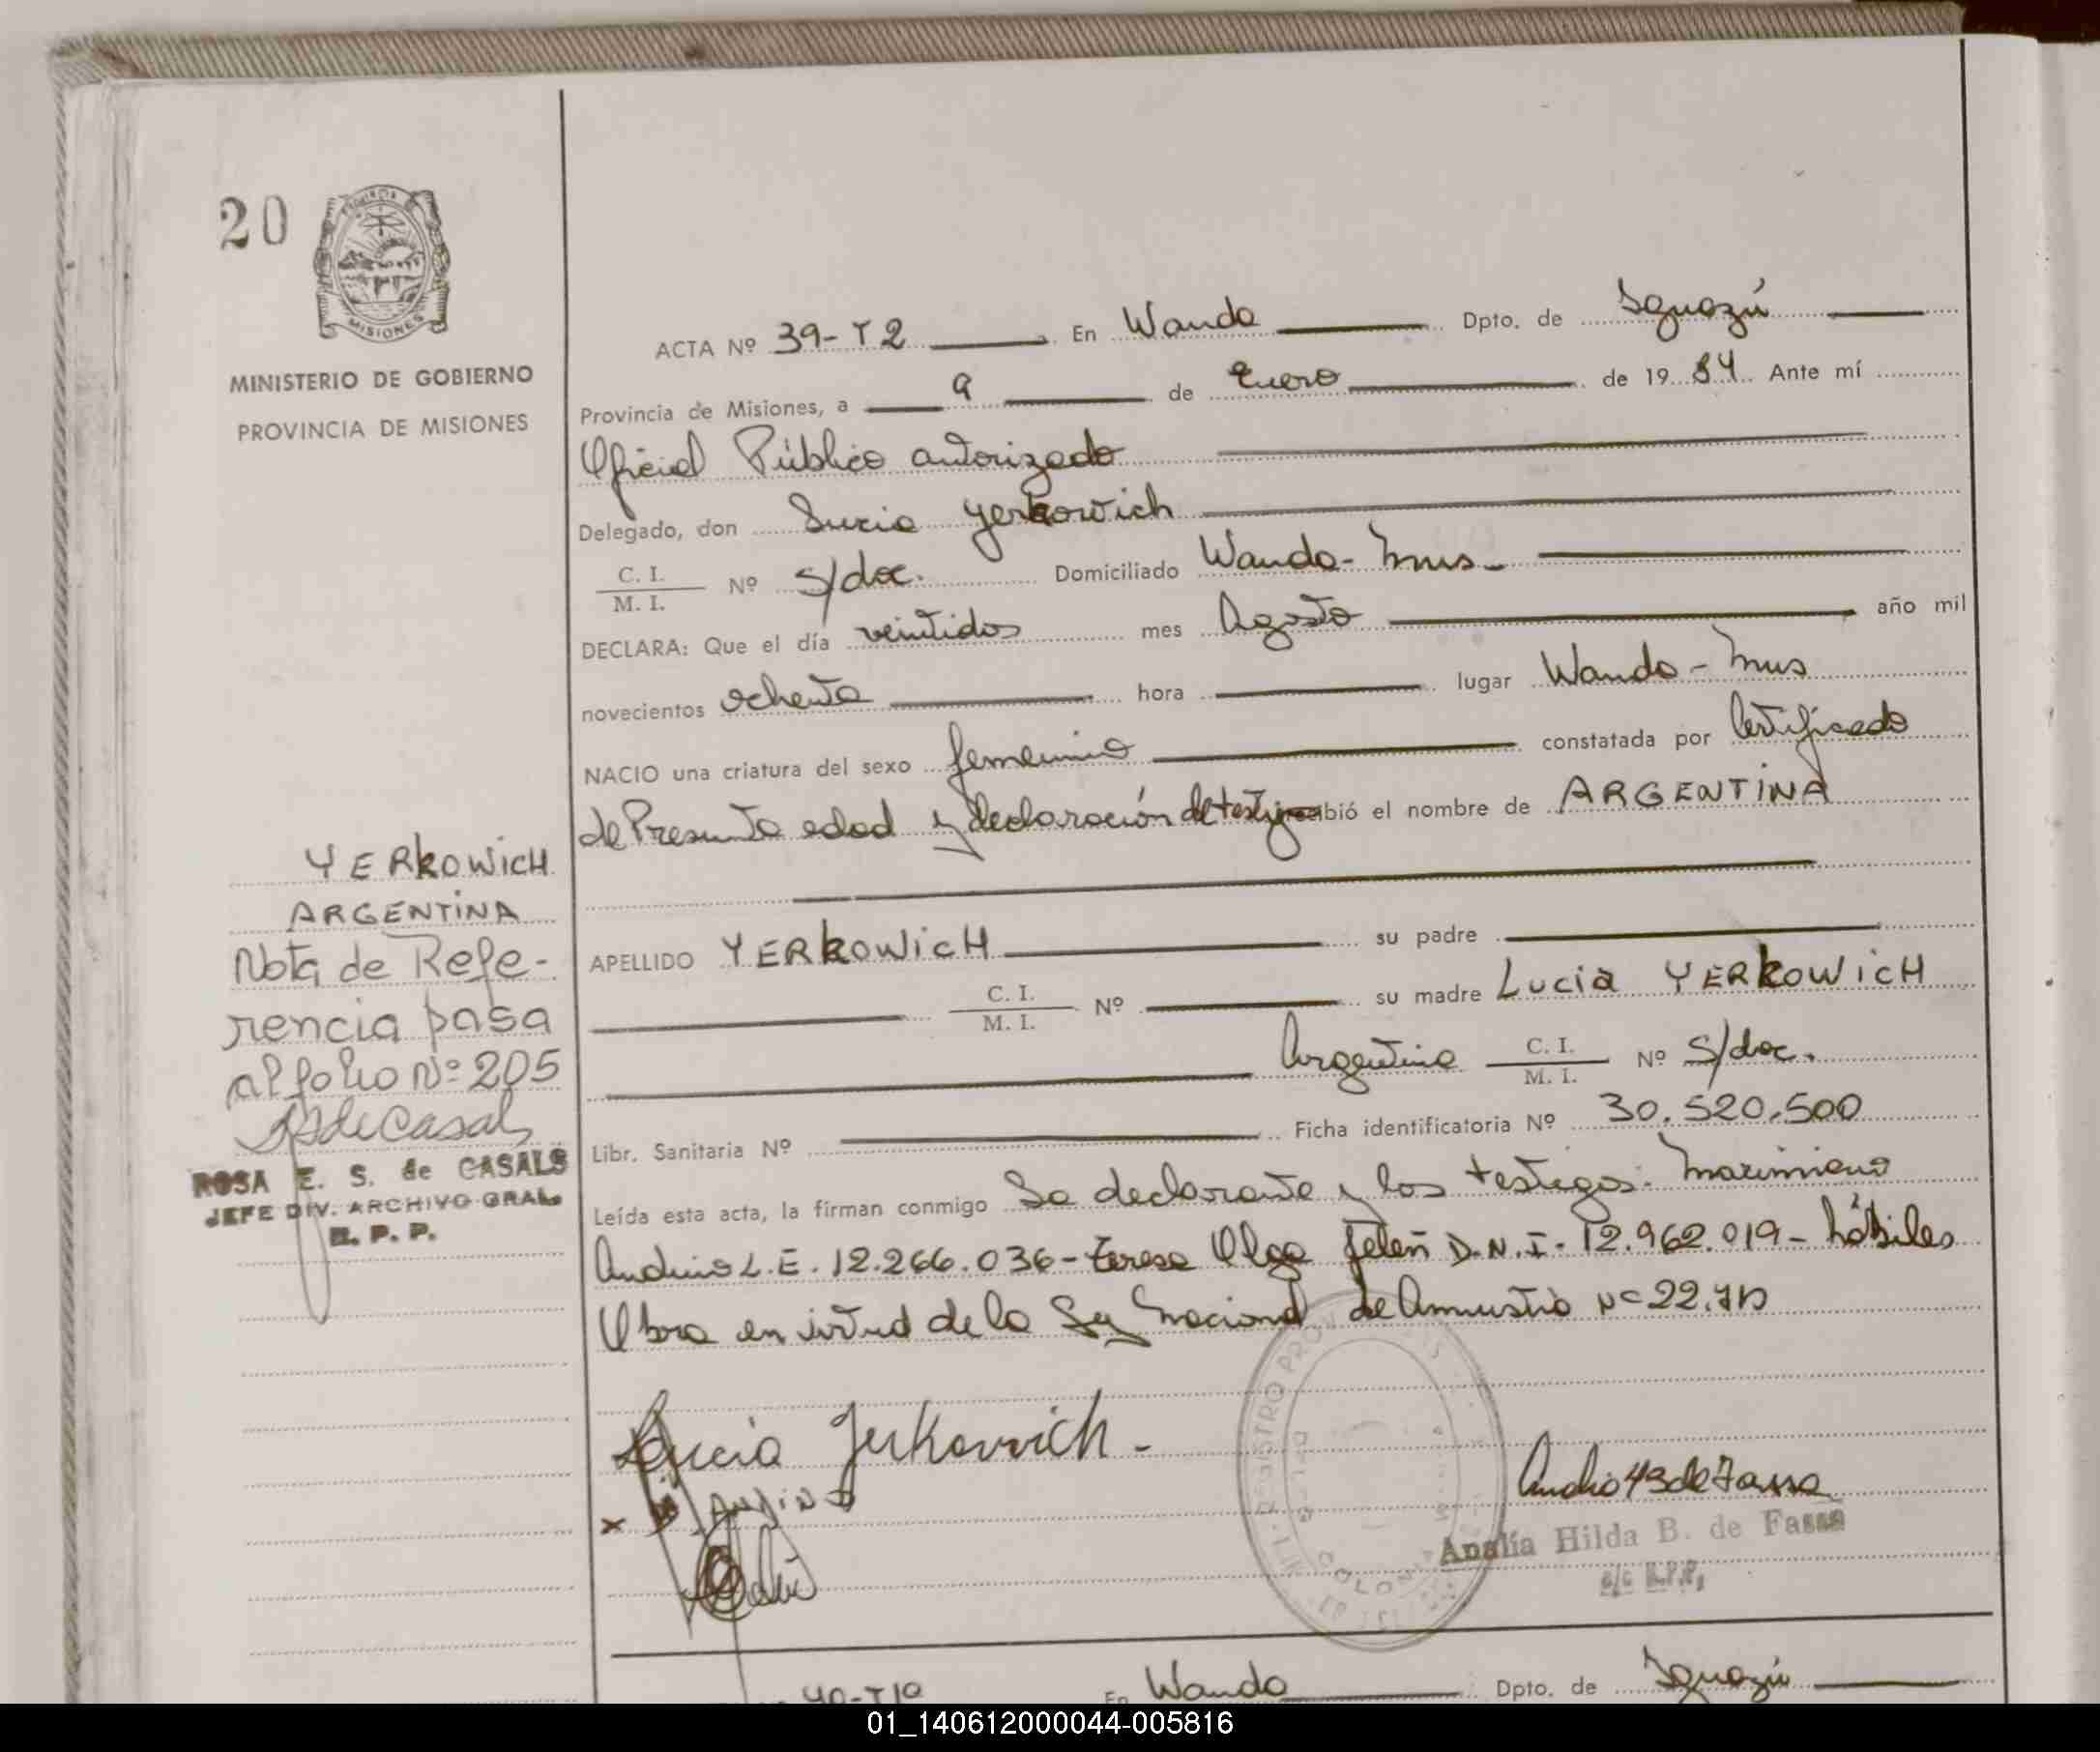 20
MISIONES
MINISTERIO DE GOBIERNO
PROVINCIA DE MISIONES
ACTA Nº 39-T2 En Wanda Dpto. de Iguazú
Provincia de Misiones, a 9 de Enero de 1984 Ante mí
Oficial Público autorizado
Delegado, don Lucia Yerkowich
C. I. / M. I. Nº S/doc. Domiciliado Wanda - Mns -
DECLARA: Que el día veintidos mes Agosto año mil
novecientos ochenta hora lugar Wanda - Mns
NACIO una criatura del sexo femenino constatada por Certificado
de Presunta edad y declaración de testigo recibió el nombre de ARGENTINA
APELLIDO YERKOWICH su padre
C. I. / M. I. Nº su madre Lucia YERKOWICH
Argentina C. I. / M. I. Nº S/doc.
Libr. Sanitaria Nº Ficha identificatoria Nº 30.520.500
Leída esta acta, la firman conmigo La declarante y los testigos: Maximiano
Andino L.E. 12.266.036 - Teresa Olga D.N.I. 12.962.019 - hábiles
Obra en virtud de la Ley Nacional de Amnistia Nº
YERKOWICH
ARGENTINA
Nota de Refe-
rencia pasa
al folio Nº 205
ROSA E. S. de CASALS
JEFE DIV. ARCHIVO GRAL.
R. P. P.
Lucia Yerkovich -
x ANDINO
REGISTRO
Analía Hilda B. de Fassa
e/c R.P.P.
40-T1º En Wanda Dpto. de Iguazú
01_140612000044-005816